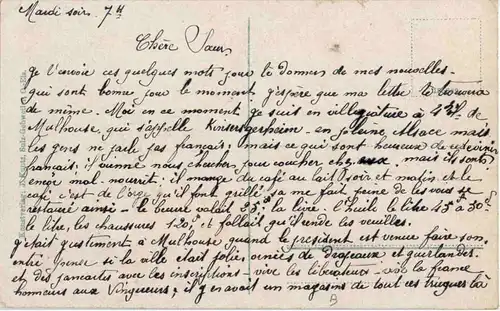 Mardi soir 7H
Chère Sœur
Je t'envoie ces quelques mots pour te donner de mes nouvelles
qui sont bonne pour le moment j'espère que ma lettre te trouvera
de même. Moi en ce moment je suis en villegiature à 4 K. de
Mulhouse, qui s'appelle Kinsergerheim en pleine Alsace mais
les gens ne parle pas français; mais ce qui sont heureux de redevenir
français; il vienne nous chercher pour coucher chez eux mais ils sont
encore mal nourrit: il mange du café au lait soir et matin et le
café c'est de l'orge qu'il font grillé sa me fait peine de les vous se
restauré ainsi - le beurre valait 25f la livre l'huile le litre 45 à 50f
le litre, les chaussures 120f et fallait qu'il rende les vieilles.
j'était justement à Mulhouse quand le président est venue faire son
entré. Pense si la ville était jolie, ornées de Drapeaux et guirlandes
et des pancartes avec les inscriptions vive les libérateurs - vive la france
honneurs aux Vingueurs, il y en avait un magasins de tout ces truques là